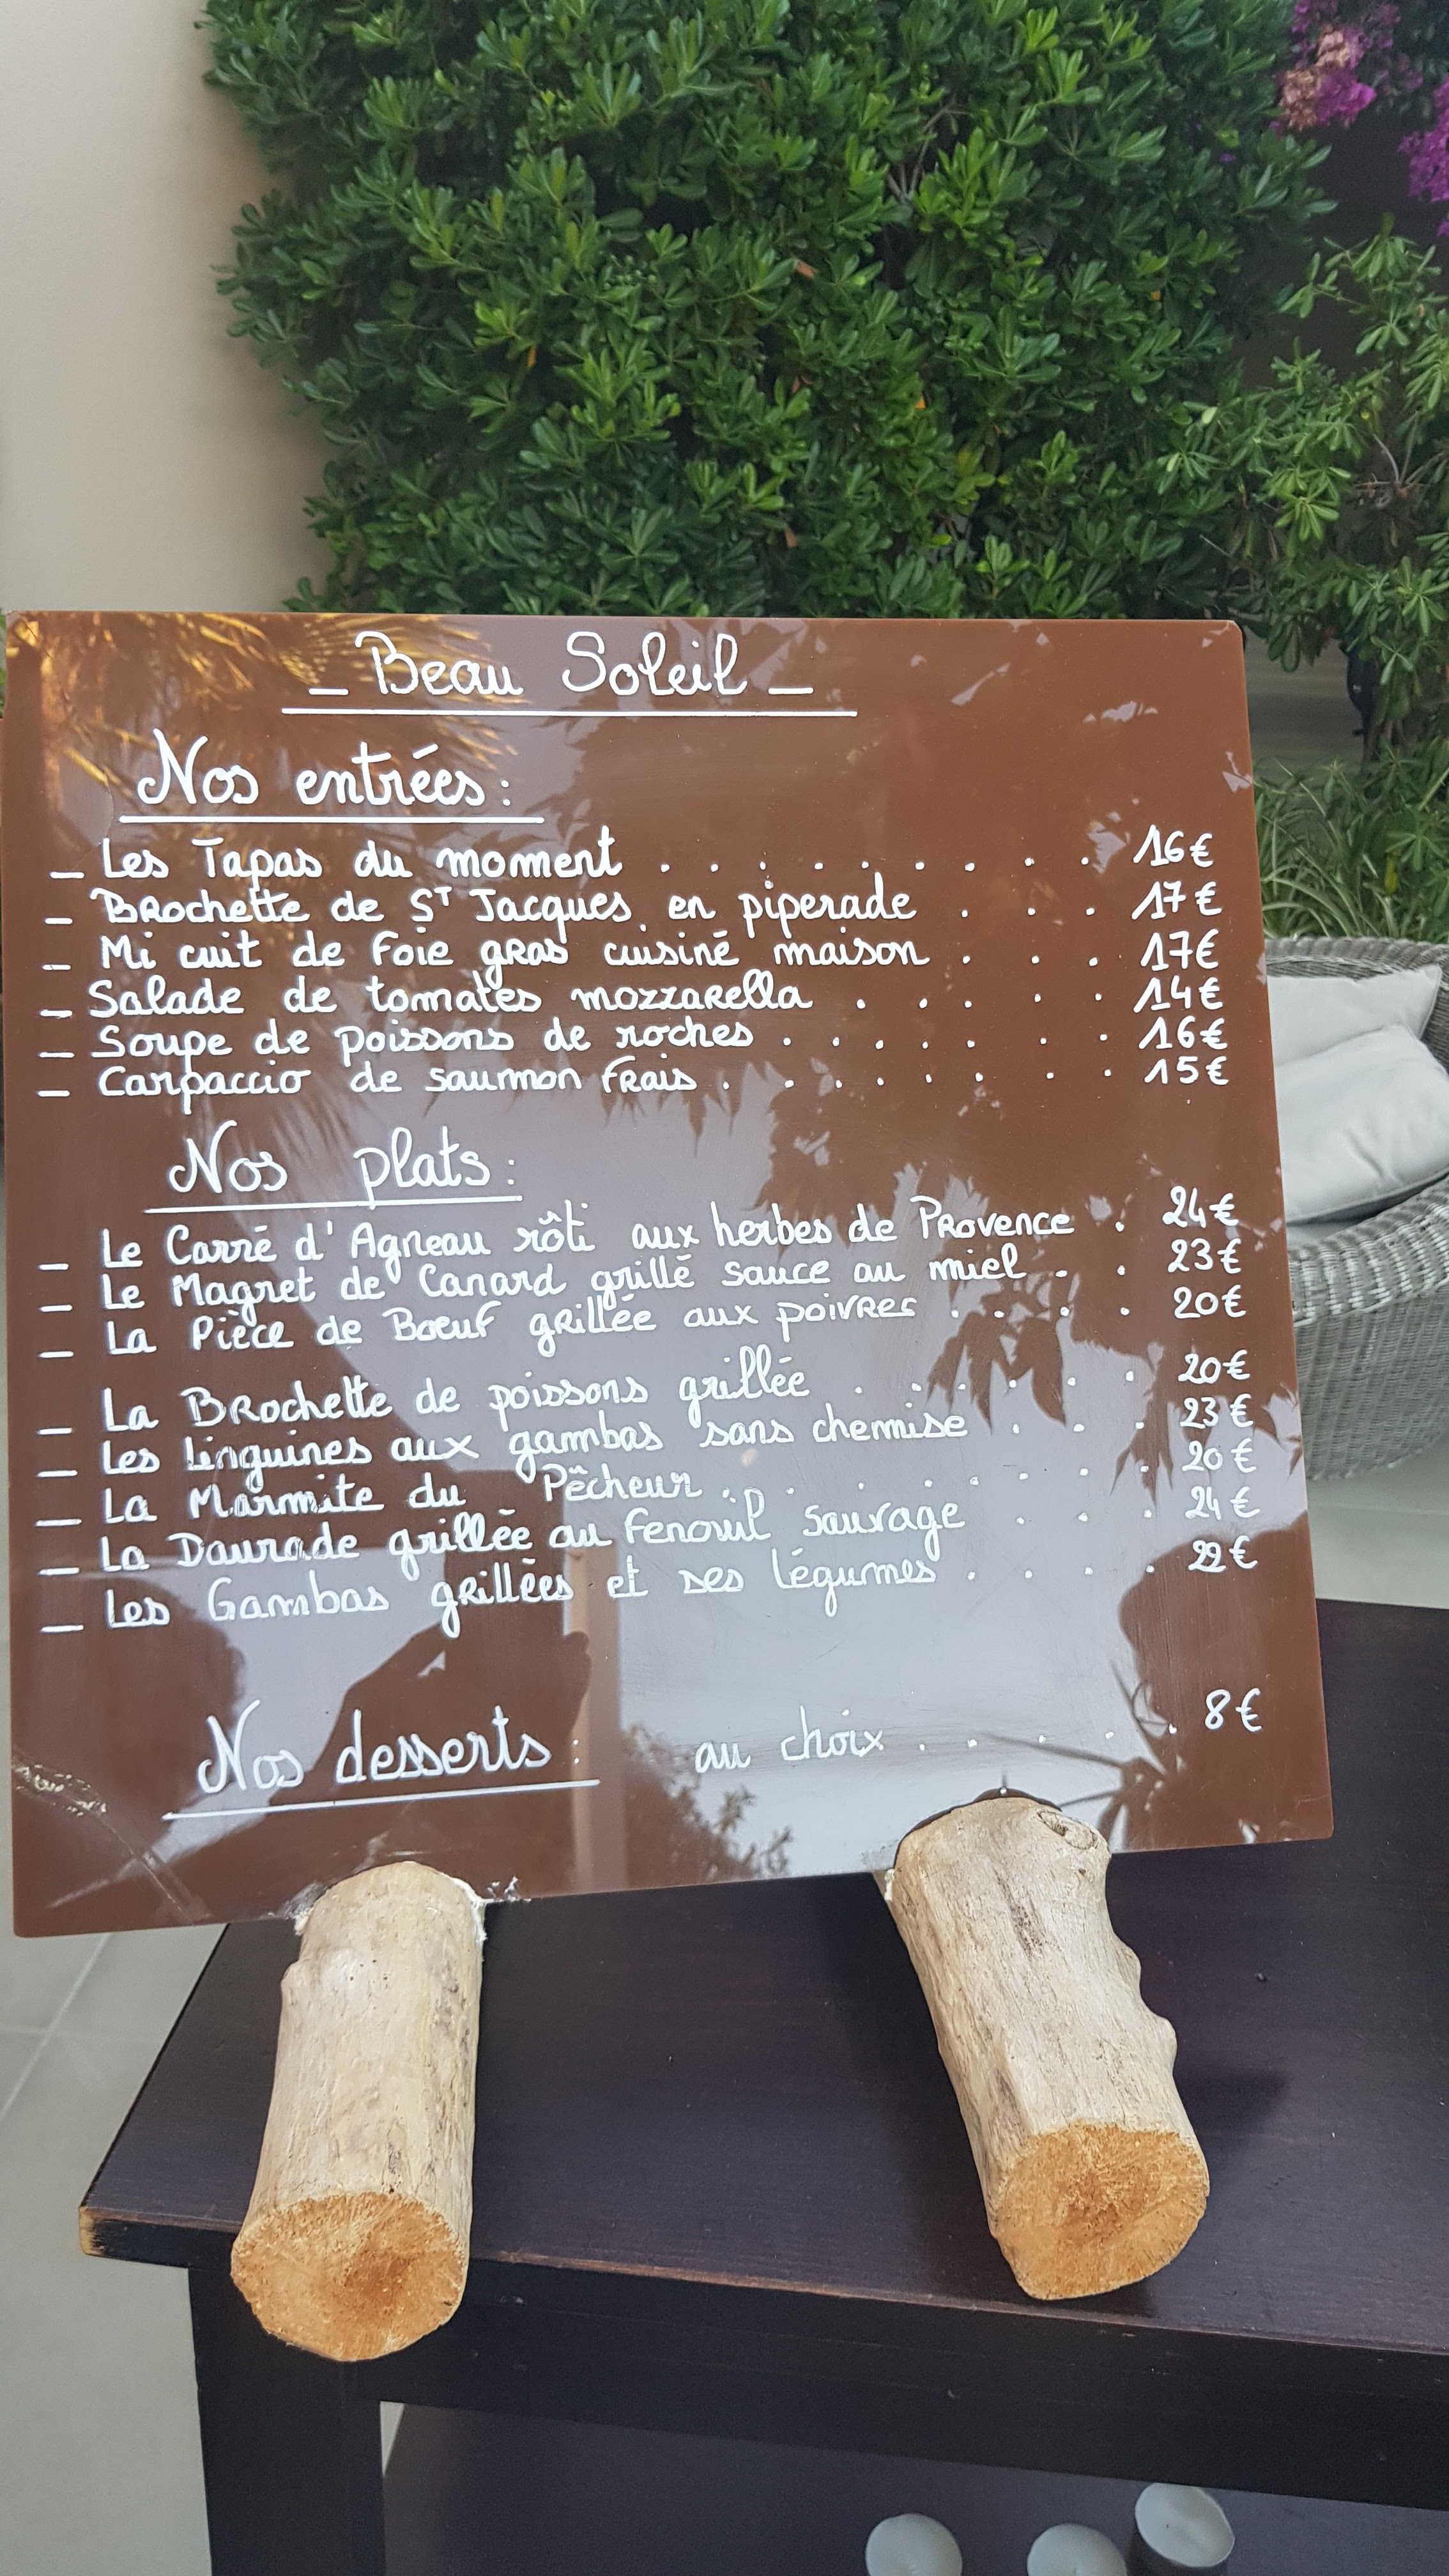 _ Beau Soleil _
Nos entrées :
_ Les Tapas du moment . . . . . . . . . 16€
_ Brochette de ST Jacques en piperade . . . 17€
_ Mi cuit de Foie gras cuisiné maison . . . 17€
_ Salade de tomates mozzarella . . . . . 14€
_ Soupe de poissons de roches . . . . . . . 16€
_ Carpaccio de saumon frais . . . . . . . . 15€
Nos plats :
_ Le Carré d'Agneau rôti aux herbes de Provence . 24€
_ Le Magret de Canard grillé sauce au miel . . 23€
_ La Pièce de Bœuf grillée aux poivres . . . . 20€
_ La Brochette de poissons grillée . . . . . . 20€
_ Les linguines aux gambas sans chemise . . . 23€
_ La Marmite du Pêcheur . . . . . . . . 20€
_ La Daurade grillée au fenouil sauvage . . . 24€
_ Les Gambas grillées et ses légumes . . . . 22€
Nos desserts : au choix . . . . . 8€